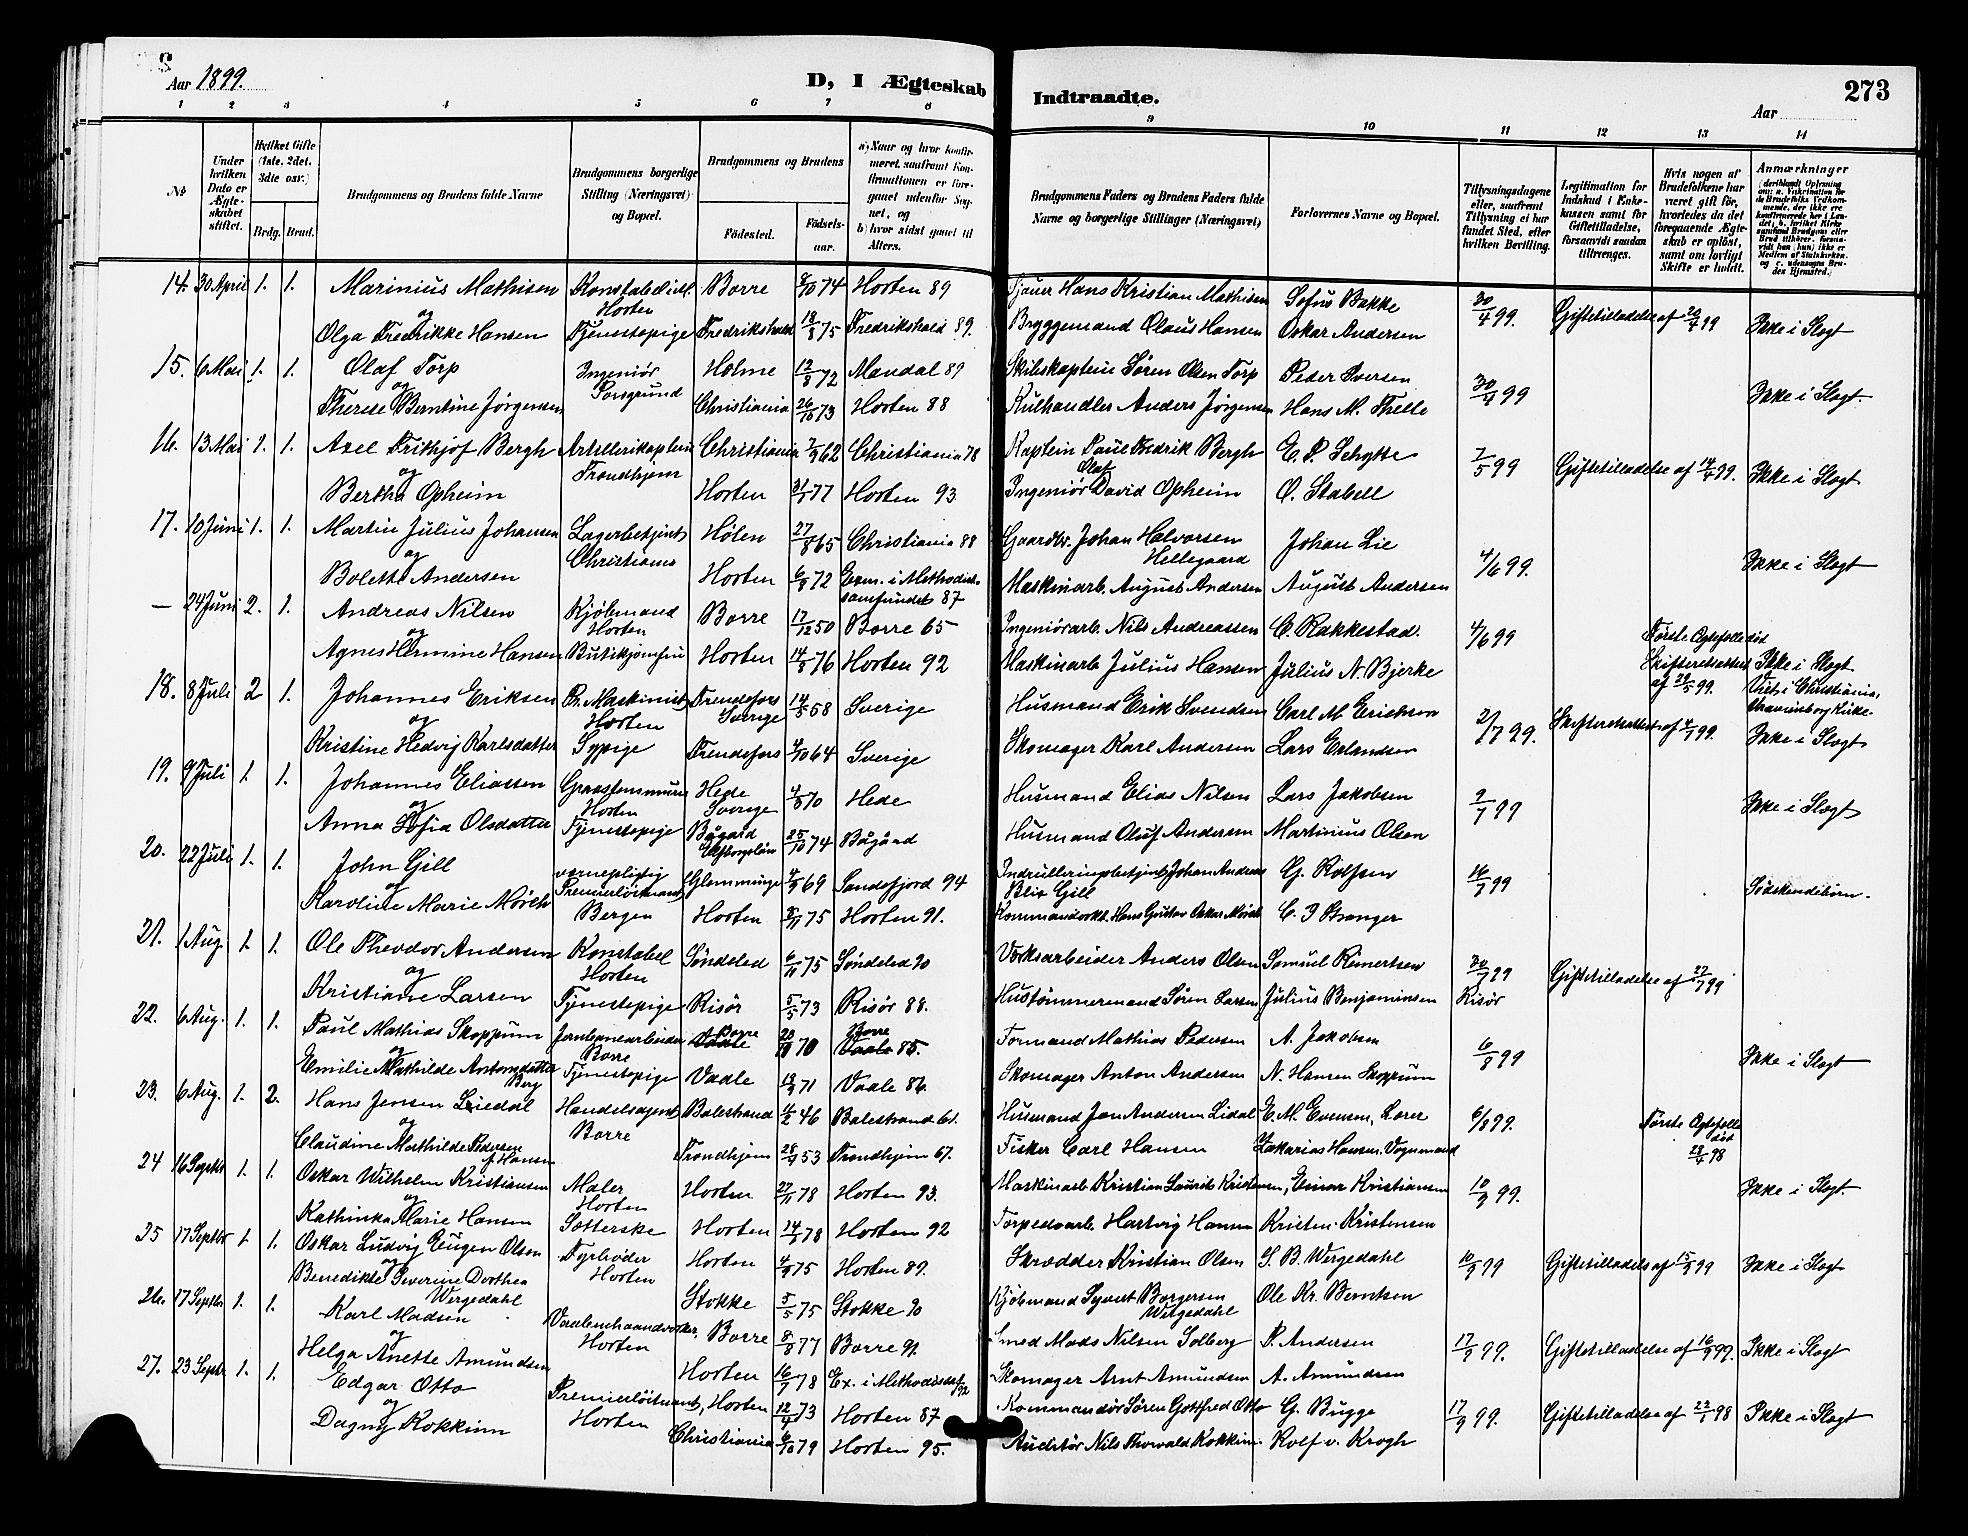 Aar 1899.
D, I Ægteskab Indtraadte.
273
Aar
1 2 3 4 5 6 7 8 9 10 11 12 13 14
No.
Under hvilken Dato er Ægteskabet stiftet.
Hvilket Gifte (1ste, 2det, 3die osv.)
Brdg. Brud.
Brudgommens og Brudens fulde Navne
Brudgommens borgerlige Stilling (Næringsvei) og Bopæl.
Brudgommens og Brudens
Fødested.
Fødselsaar.
a) Naar og hvor konfirmeret, saafremt Konfirmationen er foregaaet udenfor Sognet, og
b) hvor sidst gaaet til Alters.
Brudgommens Faders og Brudens Faders fulde Navne og borgerlige Stillinger (Næringsvei)
Forlovernes Navne og Bopæl.
Tillysningsdagene eller, saafremt Tillysning ei har fundet Sted, efter hvilken Bevilling.
Legitimation for Indskud i Enkekassen samt for Giftetilladelse, forsaavidt saadan tiltrænges.
Hvis nogen af Brudefolkene har været gift før, hvorledes da det foregaaende Ægteskab er opløst, samt om lovligt Skifte er holdt.
Anmærkninger
14. 30 April 1. 1. Marinius Mathisen Horten Borre 74 Horten 89 Hans Kristian Mathisen Sofus Bakke 30/4 99. Giftetilladelse af 20/4 99 Ikke i Slægt
og
Olga Fredrikke Hansen Tjenestepige Fredrikshald 18/8 75 Fredrikshald 89. Bryggemand Olaus Hansen Oskar Andersen
15. 6 Mai 1. 1. Olaf Torp Ingeniør Porsgrund Holme 12/8 72 Mandal 89 Skibskaptein Søren Olsen Torp Peder Iversen 30/4 99 Ikke i Slægt.
og
Therese Berntine Jørgensen Christiania 26/10 73 Horten 88 Kulhandler Anders Jørgensen Hans M. Thelle
16. 13 Mai 1. 1. Axel Frithjof Bergh Artillerikaptein Trondhjem Christiania 62 Christiania 78 Kaptein Paul Fredrik Bergh E. P. Schytte 7/5 99 Giftetilladelse af 14/4 99. Ikke i Slægt
og
Bertha Opheim Horten 31/1 77 Horten 93 Ingeniør Olaf David Opheim O. Stabell
17. 10 Juni 1. 1. Martin Julius Johansen Lagerbetjent Christiania Hölen 27/8 65 Christiania 88 Gaardbr. Johan Halvorsen Hellegaard Johan Lie 4/6 99. Ikke i Slægt
og
Bolette Andersen Horten 72 Exm. i Methodistsamfundet 87 Maskinarb. August Andersen August Andersen
— 24 Juni 2. 1. Andreas Nilsen Kjöbmand Horten Borre 17/12 50 Borre 65 Ingeniørarb. Nils Andreassen C. Rakkestad. 4/6 99 Første Ægtefælle død Skifteretsattest af 29/5 99. Ikke i Slægt Viet i Christiania,
og
Agnes Hermine Hansen Butikjomfru Horten 14/8 76 Horten 92 Maskinarb Julius Hansen Julius N. Bjerke
18. 8 Juli 2 1. Johannes Eriksen Maskinist Horten Frendefors Sverige 14/5 58 Sverige Husmand Erik Svendsen Carl M Erickson 2/7 99. Skifteretsattest af 4/7 99. Ikke i Slægt
og
Kristine Hedvig Karlsdatter Sypige Frendefors 4/10 64 Sverige Skomager Karl Andersen Lars Erlandsen
19. 9 Juli 1. 1. Johannes Eliassen Horten Hede Sverige 70 Hede Husmand Elias Nilsen Lars Jakobsen 2/7 99 Ikke i Slægt
og
Anna Sofia Olsdatter Tjenestepige 25/10 74 Husmand Oluf Andersen Martinius Olsen
20. 22 Juli 1. 1. John Gill vernepligtig Premierløitnant Bergen Glemminge 69 Sandefjord 94 Johan Andreas Blix Gill G. Rolfsen 16/7 99 Södskendebörn.
og
Karoline Marie Mörch Horten 75 Horten 91. Hans Gustav Oskar Mörch C. I Stranger
21. 1 Aug. 1. 1. Ole Theodor Andersen Konstabel Horten Söndeled 6/11 75 Söndeled 90 Anders Olsen Samuel Reinertsen 30/7 99 Giftetilladelse af 27/7 99
og
Kristiane Larsen Tjenestepige Risör 5/5 73 Risör 88. Hustömmermand Sören Larsen Julius Benjaminsen Risör
22. 6 Aug. 1. 1. Paul Mathias Skoppum Jernbanearbeider Borre Borre Vaale 70 Borre Vaale 85. Formand Mathias Pedersen A. Jakobsen 6/8 99 Ikke i Slægt
og
Emilie Mathilde Antonsdatter Berg Tjenestepige Vaale 71 Vaale 86. Skomager Anton Andersen N. Hansen Skoppum
23. 6 Aug. 1. 2. Hans Jensen Liedal Handelsagent Borre Balestrand 46 Balestrand 61. Husmand Jon Andersen Lidal E. M. Evensen, 6/8 99. Første Ægtefælle död 28/4 98
og
Claudine Mathilde Pedersen f. Hansen Trondhjem 53 Trondhjem 67. Fisker Carl Hansen Zakarias Hansen. Vognmand
24 16 Septbr 1. 1. Oskar Wilhelm Kristiansen Maler Horten Horten 27/11 78 Horten 93. Maskinarb Kristian Laurits Kristensen, Einar Kristiansen 10/9 99. Ikke i Slægt.
og
Kathinka Marie Hansen Horten 78 Horten 92 Torpedoarb. Hartvig Hansen Kristen Kristensen
25 17 Septbr 1. 1. Oskar Ludvig Eugen Olsen Fyrböder Horten Horten 4/9 75 Horten 89. Skrædder Kristian Olsen S. B. Wergedahl 10/9 99 Giftetilladels af 15/9 99 Ikke i Slægt
og
Benedikte Severine Dorthea Wergedahl Stokke 5/5 75 Stokke 90 Kjöbmand Syvert Borgersen Wergedahl Ole Kr. Berntsen
26. 17 Septbr. 1. 1. Karl Madsen Horten Borre 8/8 77 Borre 91 Smed Mads Nilsen Solberg P. Andersen 17/9 99. Giftetilladelse af 16/9 99. Ikke i Slægt
og
Helga Anette Amundsen Horten 16/7 78 Ex. i Methodistsf 92 Skomager Arnt Amundsen A. Amundsen
27. 23 Septr. 1. 1. Edgar Otto Premierlöitnant, Horten Horten 12/4 73 Horten 87 Kommandör Sören Gottfred Otto G. Bugge 17/9 99. Giftetilladelse af 22/1 98 Ikke i Slægt
og
Dagny Kokkinn Christiania 6/10 79 Horten 95. Auditör Nils Thorvald Kokkinn. Rolf v. Krogh